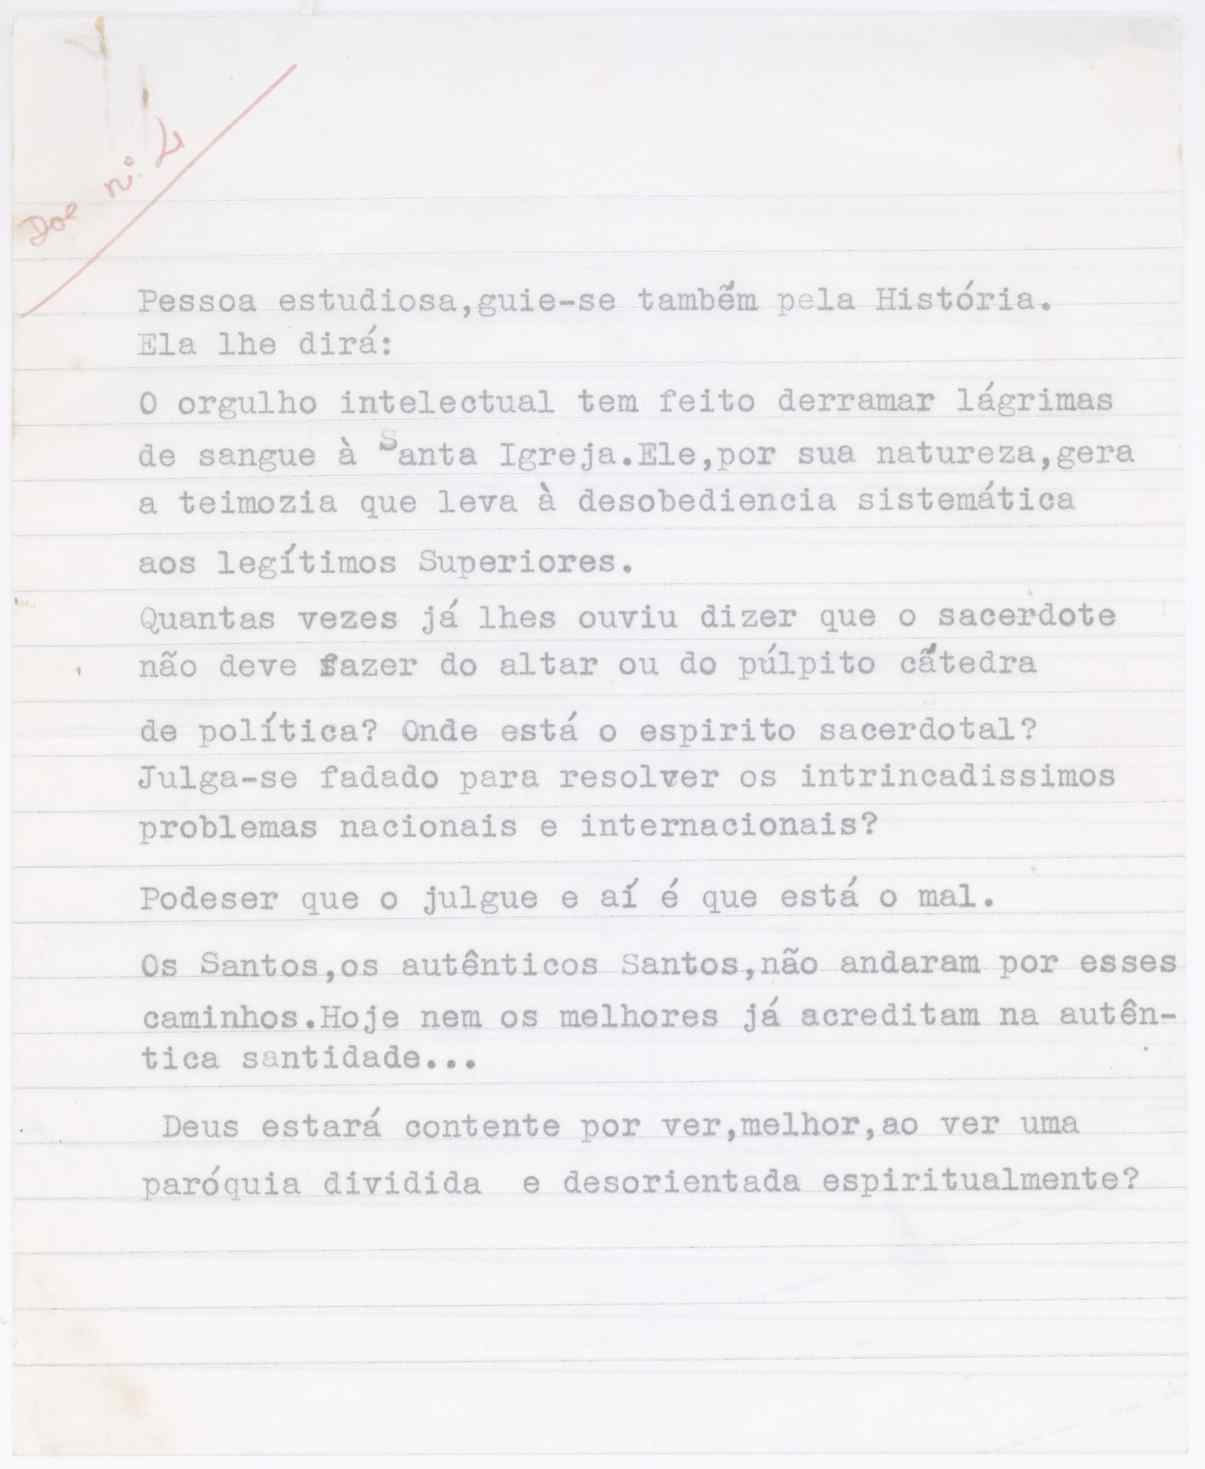 Doc nº. 4
Pessoa estudiosa,guie-se também pela História.
Ela lhe dirá:
O orgulho intelectual tem feito derramar lágrimas
de sangue à Santa Igreja.Ele,por sua natureza,gera
a teimozia que leva à desobediencia sistemática
aos legítimos Superiores.
Quantas vezes já lhes ouviu dizer que o sacerdote
não deve fazer do altar ou do púlpito cátedra
de política? Onde está o espirito sacerdotal?
Julga-se fadado para resolver os intrincadissimos
problemas nacionais e internacionais?
Podeser que o julgue e aí é que está o mal.
Os Santos,os autênticos Santos,não andaram por esses
caminhos.Hoje nem os melhores já acreditam na autên-
tica santidade...
Deus estará contente por ver,melhor,ao ver uma
paróquia dividida e desorientada espiritualmente?